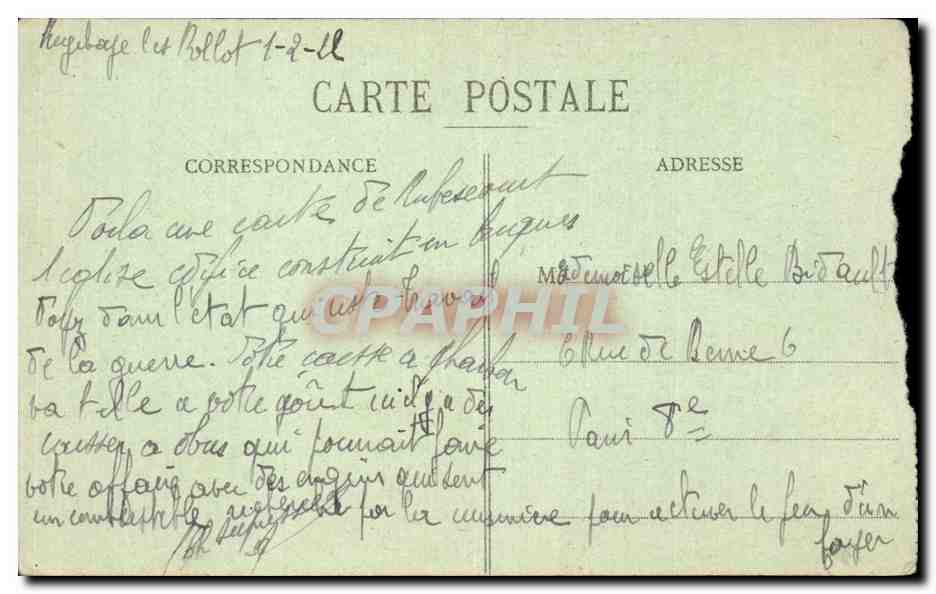 les Rollot 1-2-
CARTE POSTALE
CORRESPONDANCE
ADRESSE
Voila une carte de Rubescourt
l'eglise edifice construit en briques
dans l'etat qu
Mademoiselle Estelle Bidault
de la guerre. Votre caisse a charbon
6 Rue de Berne 6
va t elle a votre goût ici il y a des
Paris 8e
caisses a obus qui pourrait faire
votre affaire avec des engins qui sont
un combustible par la pour activer le feu d'un
foyer
CPAPHIL